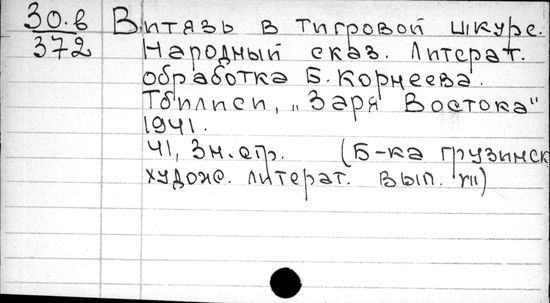 30.в
372
Витязь в тигровой шкуре.
Народный сказ. Литерат.
обработка Б. Корнеева.
Тбилиси, „Заря Востока"
1941.
41, 3 н. стр. (Б-ка грузинск
худож. литерат. вып.)